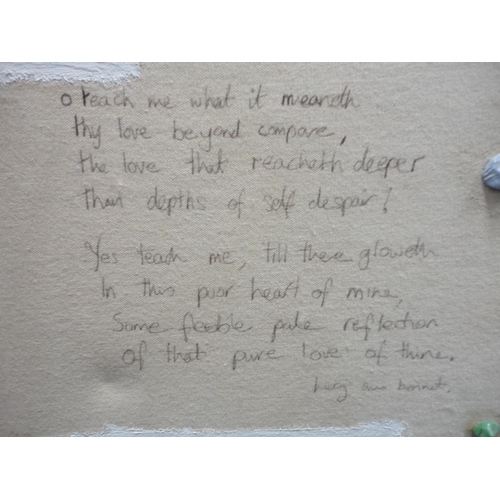 o teach me what it meaneth
thy love beyond compare,
the love that reacheth deeper
than depths of self despair!
Yes teach me, till there gloweth
In this poor heart of mine,
Some feeble pale reflection
Of that pure love of thine.
Lucy ann bennet.